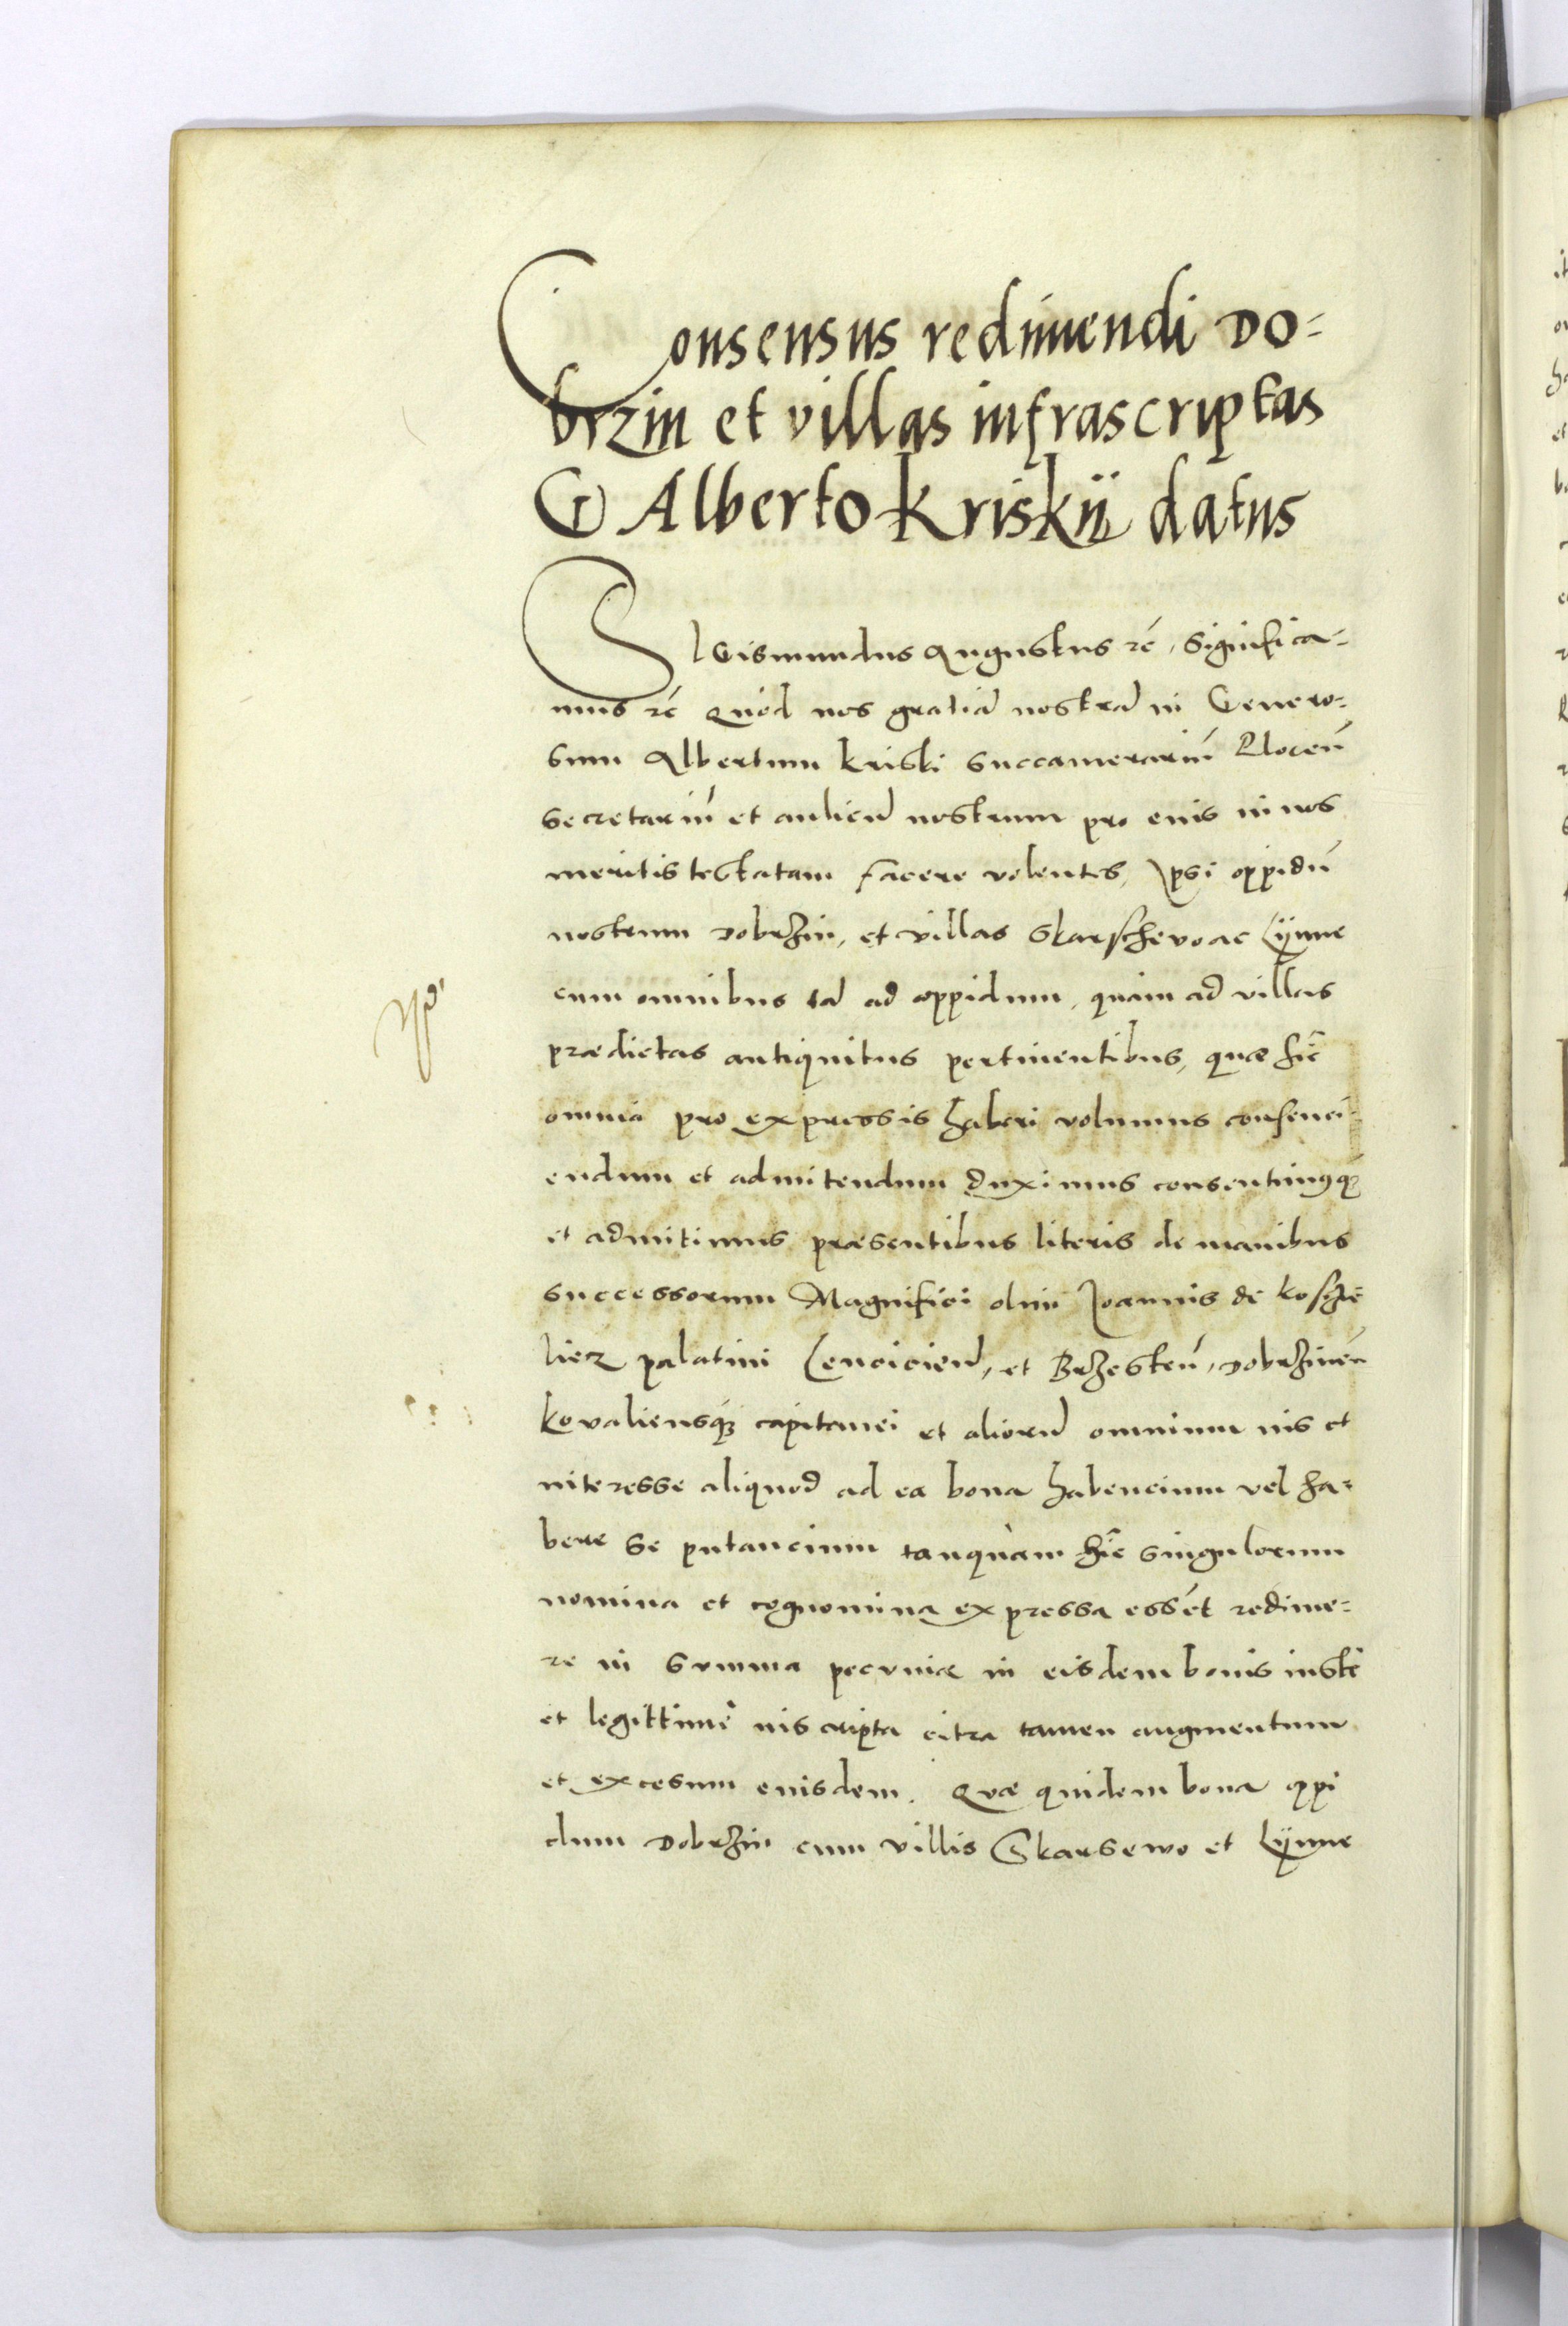 Consensus redimendi Do-
brzin et villas infrascriptas
G Alberto Kriskij datus
SIGismundus Augustus rc̄, Significa-
mus rc̄ Quod nos gratiā nostrā in Genero-
sum Albertum Kriski Succamerariū Plocen̄
Secretariū et aulicū nostrum pro eius in nos
meritis testatam facere volentes, Ipsi oppidū
nostrum Dobrzin, et villas Skarschevo ac Lÿnne
cum omnibus tā ad oppidum, quàm ad villas
prædictas antiquitus pertinentibus, quæ hîc
omnia pro expressis haberi volumus consenci-
endum et admitendum duximus consentimusq3
et admitimus præsentibus literis de manibus
successorum Magnifici olim Joannis de Kosczie
liecz palatini Lencicien̄, et Brzesten̄, Dobrzinen̄
Kovaliensq3 capitanei et aliorū omnium ius et
interesse aliquod ad ea bona habencium vel ha-
bere se putancium tanquàm hîc singulorum
nomina et cognomina expressa essēt redime-
re in summa pecuniæ in eisdem bonis iustè
et legittimè inscripta citra tamen augmentum
et excesum eiusdem. Quæ quidem bona oppi
dum Dobrzin cum villis Skarsewo et Lÿnne